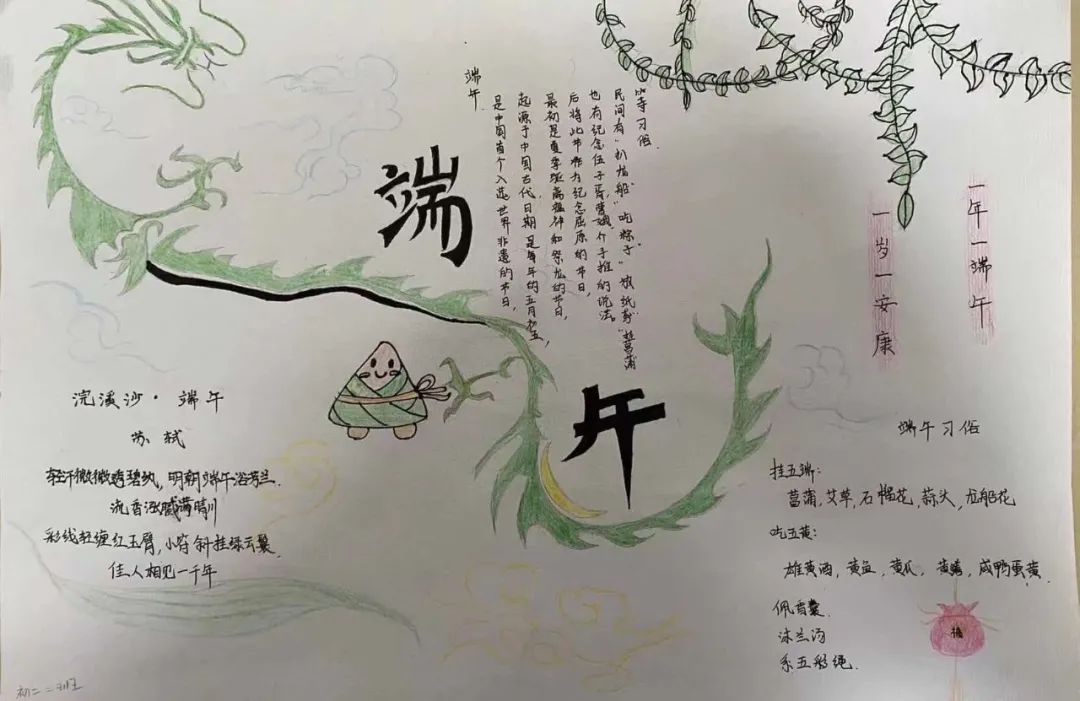 端午
端午
是中国首个入选世界非遗的节日,
起源于中国古代,日期是每年的五月初五,
最初是夏季驱离瘟神和祭龙的节日,
后将此节作为纪念屈原的节日,
也有纪念伍子胥,曹娥,介子推的说法。
民间有“扒龙船”“吃粽子”“放纸鸢”“挂菖蒲
”等习俗。
一年一端午
一岁一安康
浣溪沙·端午
苏轼
轻汗微微透碧纨,明朝端午浴芳兰.
流香涨腻满晴川
彩线轻缠红玉臂,小符斜挂绿云鬟.
佳人相见一千年
端午习俗
挂五端:
菖蒲,艾草,石榴花,蒜头,龙船花
吃五黄:
雄黄酒,黄鱼,黄瓜,黄鳝,咸鸭蛋黄.
佩香囊.
沐兰汤
系五彩绳.
福
初二二班